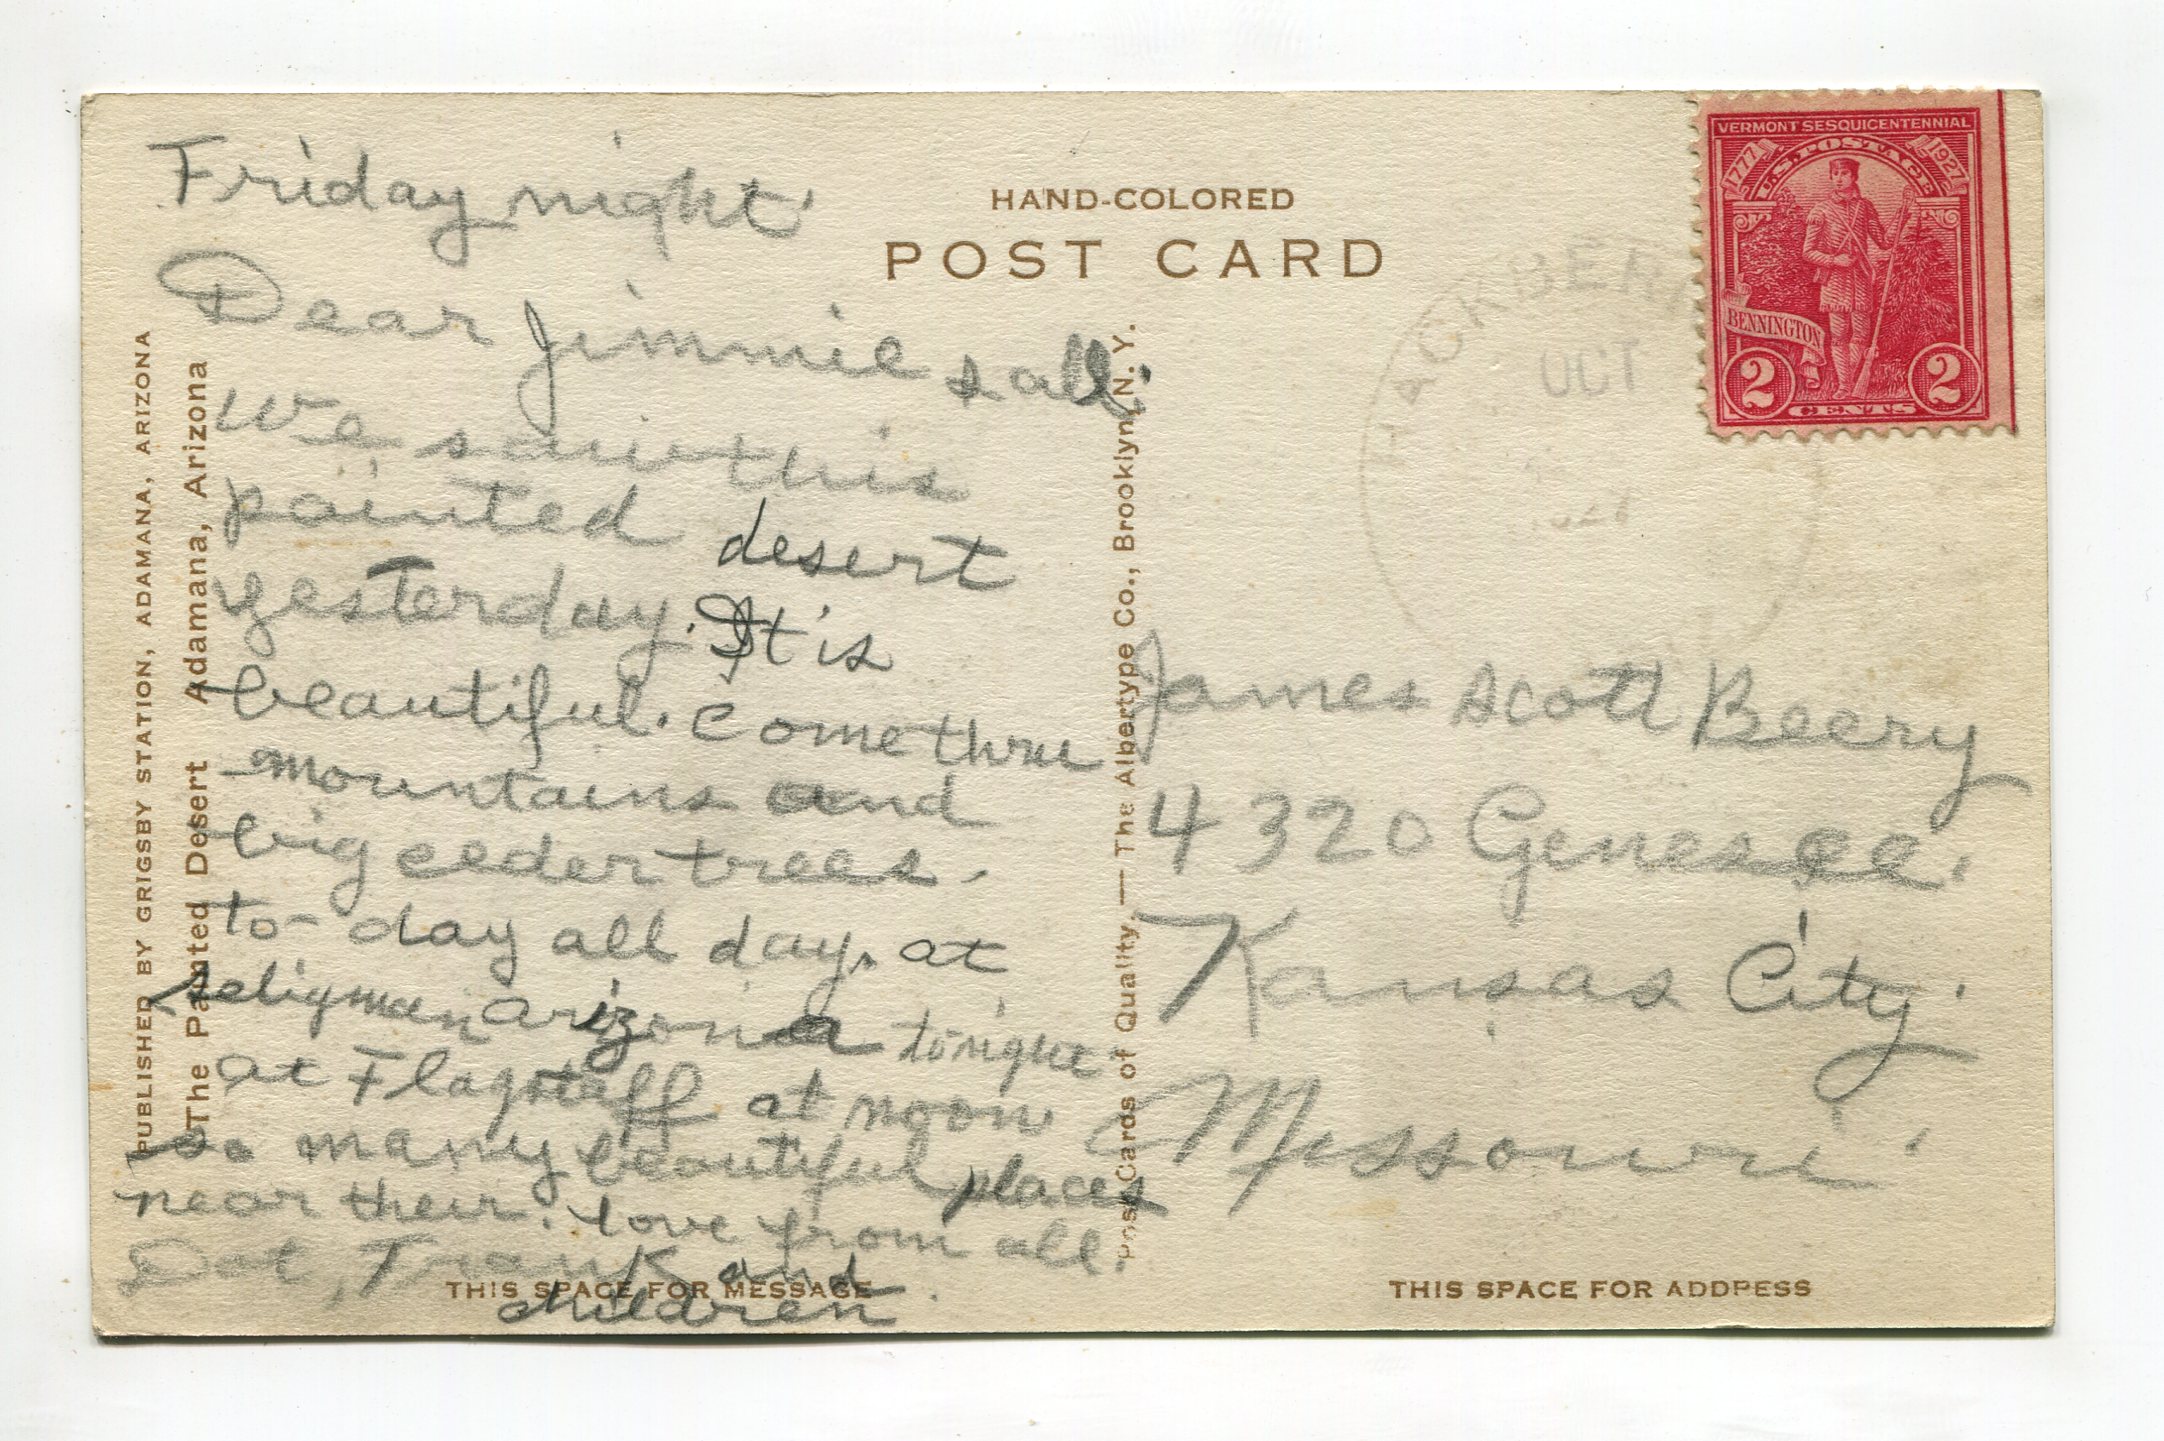 Friday night
Dear Jimmie & all.
We saw this
painted desert
yesterday. It is
beautiful. Come thru
mountains and
big ceder trees.
to-day all day. at
Seligman arizona tonight
at Flagstaff at noon
so many beautiful places
near their. love from all.
Dot, Frank and
children
PUBLISHED BY GRIGSBY STATION, ADAMANA, ARIZONA
The Painted Desert Adamana, Arizona
HAND-COLORED
POST CARD
Post Cards of Quality.—The Albertype Co., Brooklyn, N. Y.
HACKBER
OCT
VERMONT SESQUICENTENNIAL
1777 U.S. POSTAGE 1927
BENNINGTON
2 CENTS 2
James Scott Beery
4320 Genesee.
Kansas City.
Missouri
THIS SPACE FOR MESSAGE
THIS SPACE FOR ADDRESS